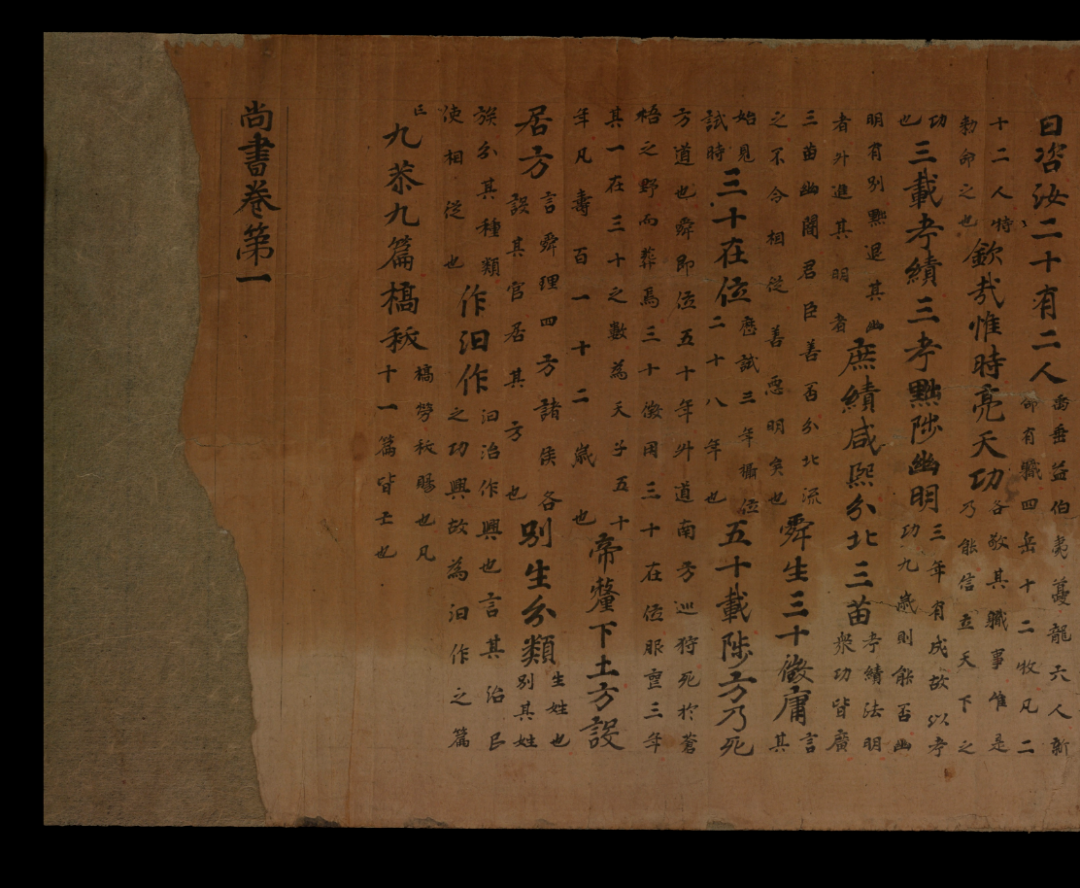 曰咨汝二十有二人禹垂益伯夷夔龍六人新命有職四岳十二牧凡二
十二人特勑命之也欽哉惟時亮天功各敬其職事惟是乃能信立天下之
功也三載考績三考黜陟幽明三年有成故以考功九歲則能否幽
明有別黜退其幽者外進其明者庶績咸熙分北三苗考績法明衆功皆廣
三苗幽闇君臣善否分北流之不令相從善惡明矣也舜生三十徵庸言其
始見試時三十在位歷試三年攝位二十八年也五十載陟方乃死
方道也舜即位五十年外道南方巡狩死於蒼梧之野而葬焉三十徵因三十在位服喪三年
其一在三十之數為天子五十年凡壽百一十二歲也帝釐下土方設
居方言舜理四方諸侯各設其官居其方也別生分類生姓也別其姓
族分其種類使相從也作汩作汩治作興也言其治民之功興故為汩作之篇
亡九恭九篇槁飫槁勞飫賜也凡十一篇皆亡也
尚書卷第一